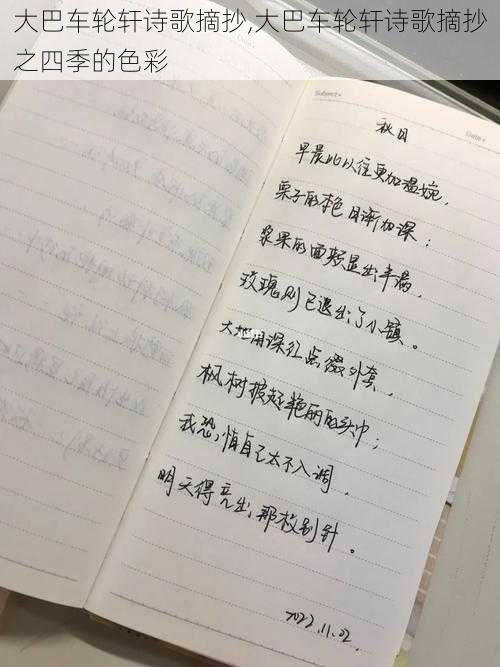 大巴车轮轩诗歌摘抄,大巴车轮轩诗歌摘抄
之四季的色彩
Subject
Date
秋日
早晨比以往更加温婉，
栗子的棕色日渐加深；
浆果的面颊显出丰满，
玫瑰则已退出了小镇。
大地用深红点缀外套，
枫树披起艳丽的头巾；
我恐怕自己太不入调，
明天得亮出那枚别针。
2022.11.02.